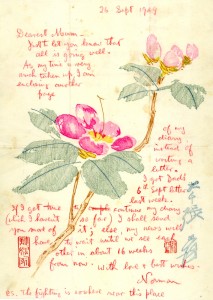 26 Sept 1949
Dearest Mamma –
Just let you know that
all is going well.
As my time is very
much taken up, I am
enclosing another
page
of my
diary
instead of
writing a
letter.
I got Dad's
6th Sept letter
last week.
If I get time to continue my diary
(which I haven't so far) I shall send
you most of it; else, my news will
have to wait until we see each
other in about 16 weeks
from now.
With love & best wishes
Norman
P.S. The fighting is nowhere near this place